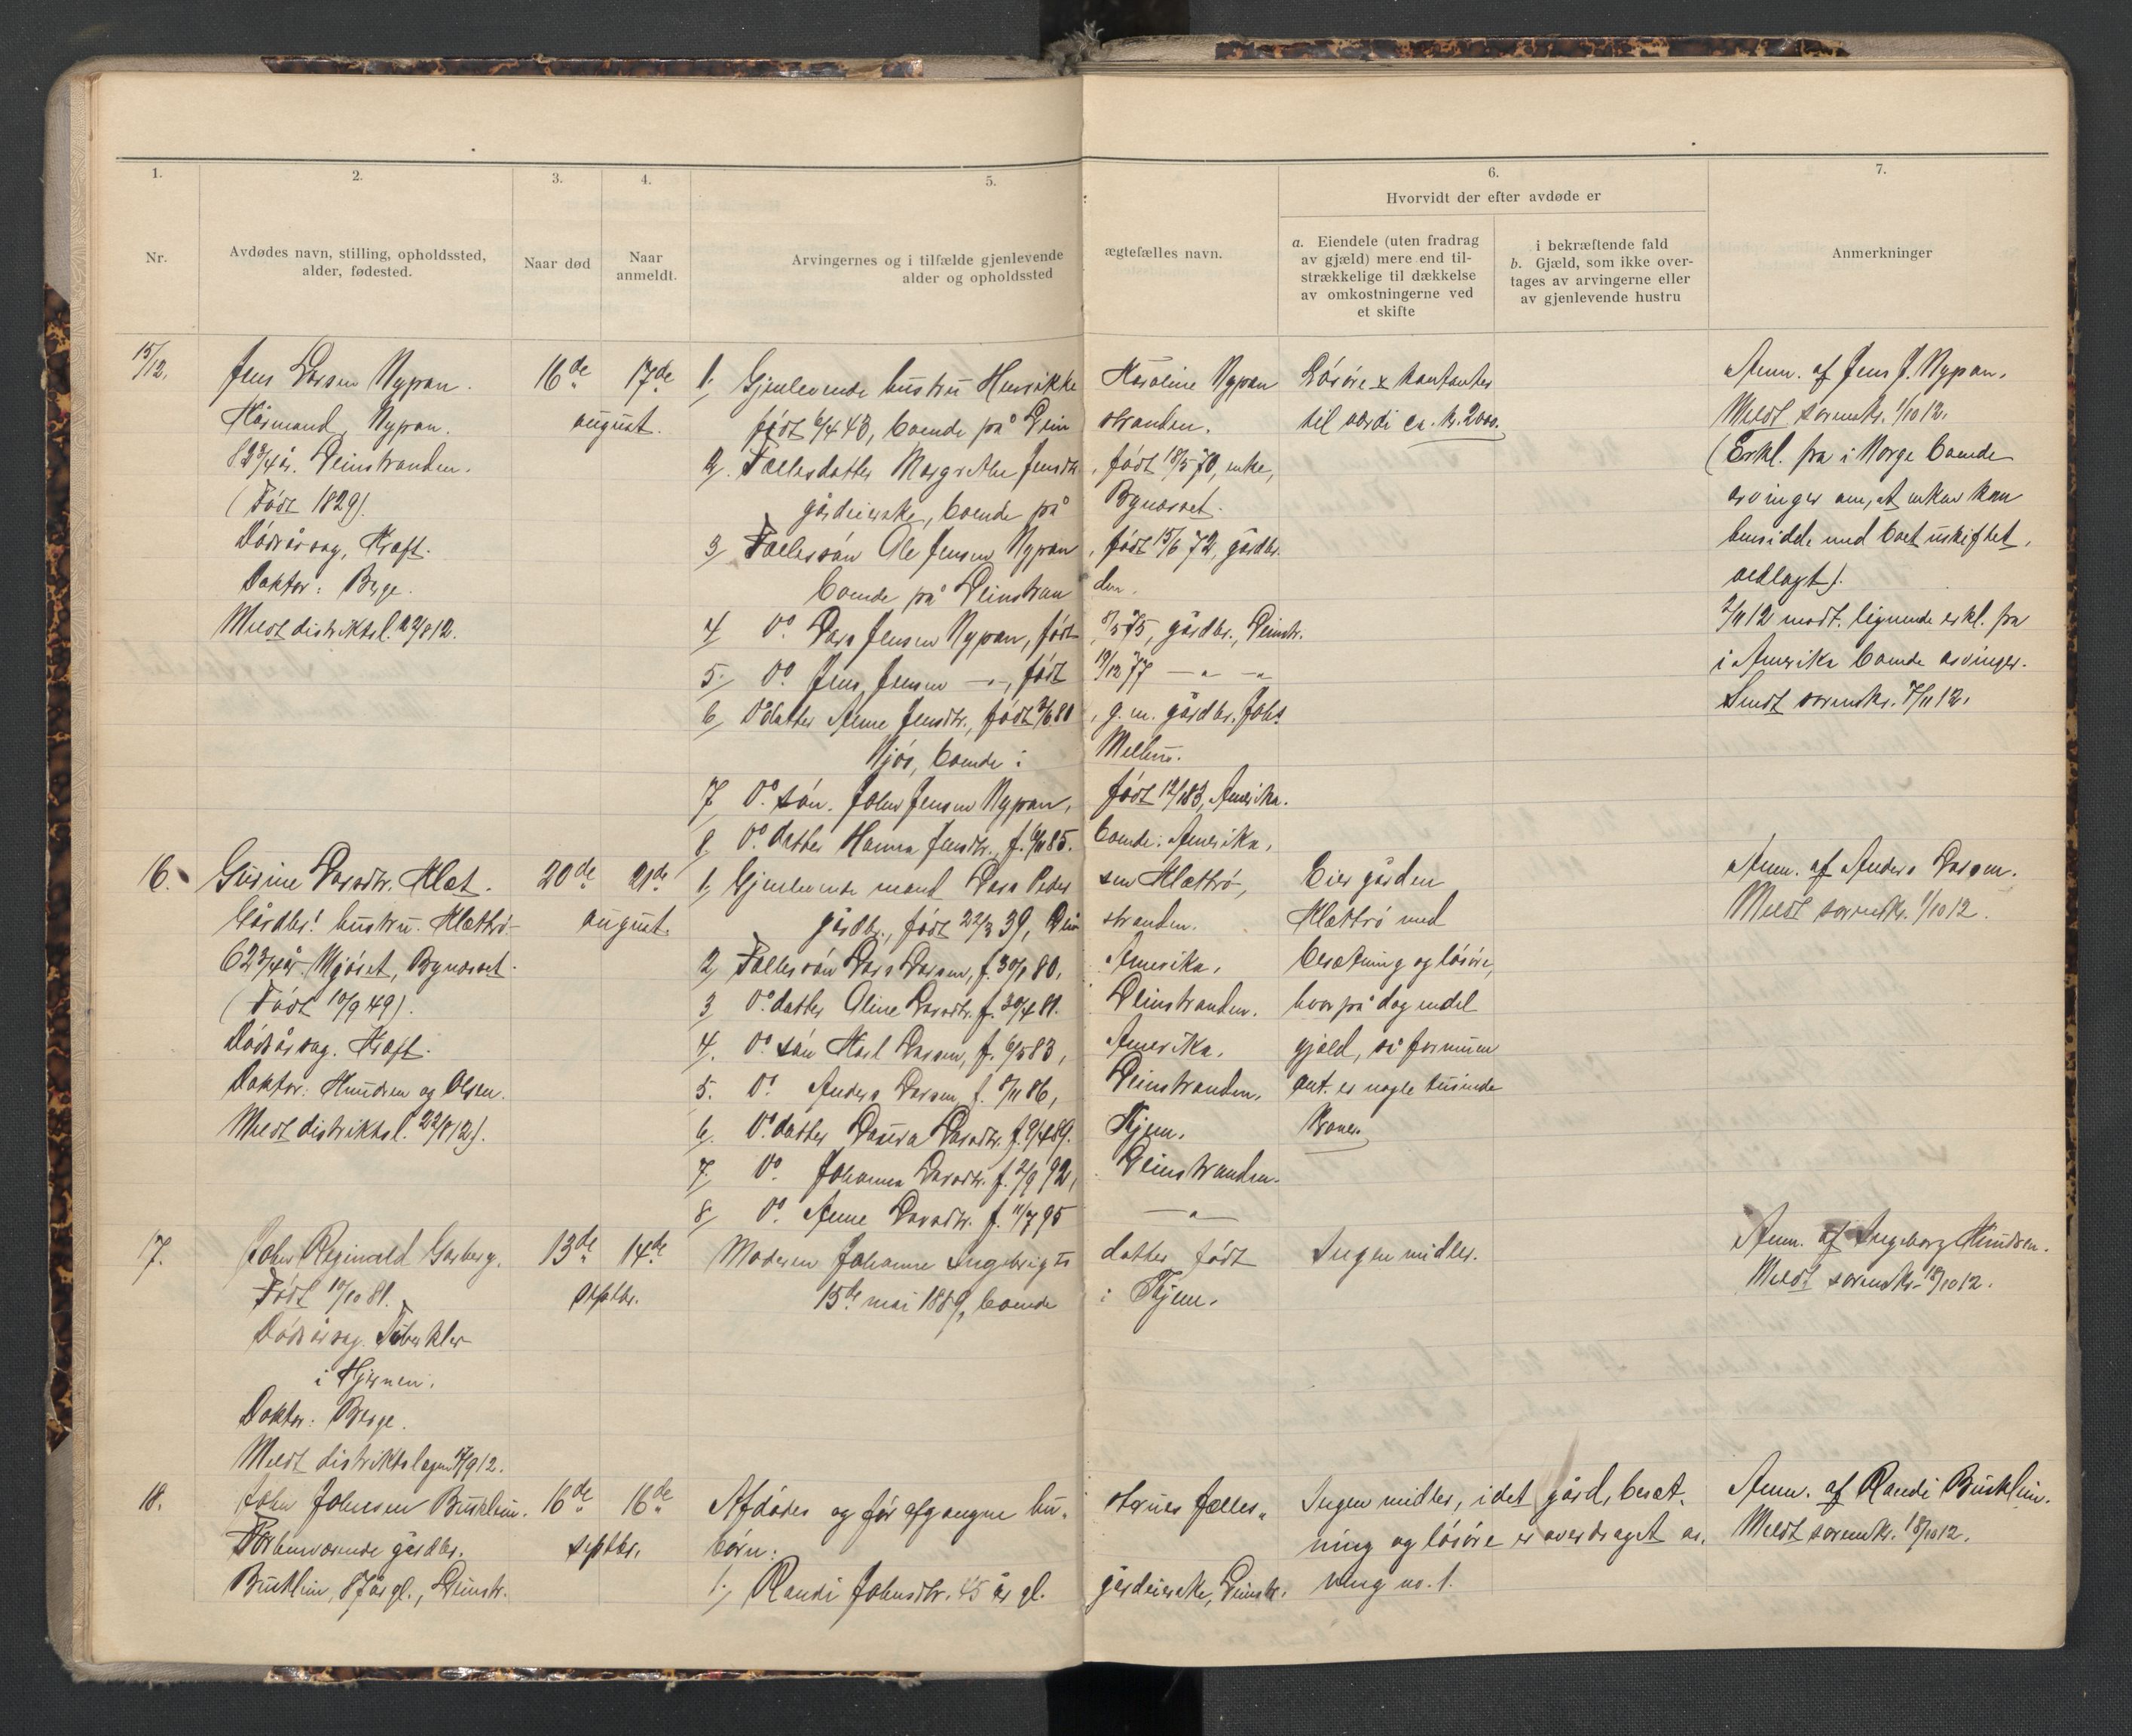 1.
2.
3.
4.
5.
6.
7.
Nr.
Avdødes navn, stilling, opholdssted,
alder, fødested.
Naar død
Naar
anmeldt.
Arvingernes og i tilfælde gjenlevende ægtefælles navn.
alder og opholdssted
Hvorvidt der efter avdøde er
a. Eiendele (uten fradrag
av gjæld) mere end til-
strækkelige til dækkelse
av omkostningerne ved
et skifte
i bekræftende fald
b. Gjæld, som ikke over-
tages av arvingerne eller
av gjenlevende hustru
Anmerkninger
15/12.
Jens Larsen Nypan.
Kårmand, Nypan.
82 3/4 år. Leinstranden.
(Født 1829).
Dødsårsag, Kræft.
Doktor: Berge.
Meldt distriktsl. 22/8 12.
16de
17de
august.
1, Gjenlevende hustru Henrikke Karoline Nypan
født 6/4 43, boende på Leinstranden.
2. Fællesdatter Margrethe Jensdtr., født 18/5 70, enke,
gårdeierske, boende på Bynesset.
3, Fællessøn Ole Jensen Nypan, født 15/6 72, gårdbr.
boende på Leinstranden.
4, Do. Lars Jensen Nypan, født 8/5 75, gårdbr., Leinstr.
5, Do. Jens Jensen —"—, født 19/12 77 —"— —"
6, Do datter Anne Jensdtr., født /6 80, g. m. gårdbr. Johs
Njøs, boende i Melhus.
7, Do. søn. John Jensen Nypan, født 12/1 83, Amerika.
8. Do. datter Hanna Jensdtr., f. 6/11 85. boende: Amerika.
Løsøre & kontanter
til værdi ca. kr. 2000.
Anm. af Jens J. Nypan.
Meldt sorenskr. 1/10 12.
(Erkl. fra i Norge boende
arvinger om, at enken kan
hensidde med boet uskiftet,
vedlagt).
2/11 12 modt. lignende erkl. fra
i Amerika boende arvinger.
Sendt sorenskr. 7/11 12.
16.
Gurine Larsdtr. Klet.
Gårdbr! hustru. Klettrø
62 3/4 år. Mjøset, Bynesset.
(Født 10/9 49).
Dødsårsag. Kræft.
Doktor: Knudsen og Olsen.
Meldt distriktsl. 22/8 12).
20de
21de
august.
1, Gjenlevende mand Lars Pedersen Klettrø,
gårdbr., født 22/3 39, Leinstranden.
2, Fællessøn Lars Larsen, f. 30/1 80, Amerika.
3, Do. datter Oline Larsdtr. f. 30/4 81. Leinstranden.
4. Do søn Karl Larsen, f. 6/5 83, Amerika.
5. Do. Anders Larsen, f. 8/11 86, Leinstranden.
6. Do. datter Laura Larsdtr. f. 9/4 89. Tiller.
7, Do. Johanna Larsdtr. f. 2/9 92, Leinstranden.
8, Do. Anne Larsdtr. f. 11/7 95 —"—
Eier gården
Klettrø med
besætning og løsøre,
hvorpå dog endel
gjæld, så formuen
ant. er nogle tusinde
Kroner.
Anm. af Anders Larsen.
Meldt sorenskr. 1/10 12.
17.
John Reginald Garberg.
Født 10/10 81.
Dødsårsag. Tuberkler
i Hjernen.
Doktor: Berge.
Meldt distriktslægen 17/9 12.
13de
14de
septbr.
Moderen Johanne Ingebrigtsdatter født
15de mai 1889, boende i
Ingen midler.
Anm. af Ingeborg Knudsen.
Meldt sorenskr. 18/10 12.
18.
John Johnsen Busklein.
Forhenværende gårdbr.
Busklein, 87 år gl., Leinstr.
16de
16de
septbr.
Afdødes og før afgangne hustrues fælles-
børn:
1, Randi Johnsdtr. 45 år gl. gårdeierske, Leinstr.
Ingen midler, idet gård, besæt.
ning og løsøre er overdraget ar.
ving no. 1.
Anm. af Randi Busklein.
Meldt sorenskr. 18/10 12.